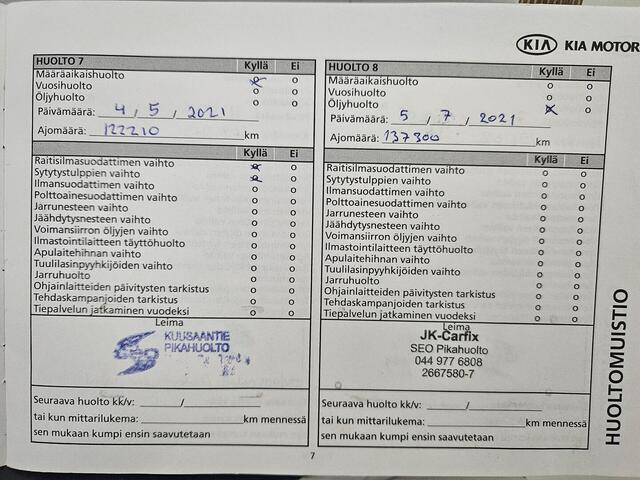 KIA KIA MOTOR
HUOLTO 7 Kyllä Ei
Määräaikaishuolto o o
Vuosihuolto x o
Öljyhuolto o o
Päivämäärä: 4 / 5 / 2021
Ajomäärä: 122210 km
Kyllä Ei
Raitisilmasuodattimen vaihto x o
Sytytystulppien vaihto x o
Ilmansuodattimen vaihto o o
Polttoainesuodattimen vaihto o o
Jarrunesteen vaihto o o
Jäähdytysnesteen vaihto o o
Voimansiirron öljyjen vaihto o o
Ilmastointilaitteen täyttöhuolto o o
Apulaitehihnan vaihto o o
Tuulilasinpyyhkijöiden vaihto o o
Jarruhuolto o o
Ohjainlaitteiden päivitysten tarkistus o o
Tehdaskampanjoiden tarkistus o o
Tiepalvelun jatkaminen vuodeksi o o
Leima
KUUSAANTIE
PIKAHUOLTO
Seuraava huolto kk/v: ______/______
tai kun mittarilukema: ______ km mennessä
sen mukaan kumpi ensin saavutetaan
HUOLTO 8 Kyllä Ei
Määräaikaishuolto o o
Vuosihuolto o o
Öljyhuolto x o
Päivämäärä: 5 / 7 / 2021
Ajomäärä: 137300 km
Kyllä Ei
Raitisilmasuodattimen vaihto o o
Sytytystulppien vaihto o o
Ilmansuodattimen vaihto o o
Polttoainesuodattimen vaihto o o
Jarrunesteen vaihto o o
Jäähdytysnesteen vaihto o o
Voimansiirron öljyjen vaihto o o
Ilmastointilaitteen täyttöhuolto o o
Apulaitehihnan vaihto o o
Tuulilasinpyyhkijöiden vaihto o o
Jarruhuolto o o
Ohjainlaitteiden päivitysten tarkistus o o
Tehdaskampanjoiden tarkistus o o
Tiepalvelun jatkaminen vuodeksi o o
Leima
JK-Carfix
SEO Pikahuolto
044 977 6808
2667580-7
Seuraava huolto kk/v: ______/______
tai kun mittarilukema: ______ km mennessä
sen mukaan kumpi ensin saavutetaan
HUOLTOMUISTIO
7